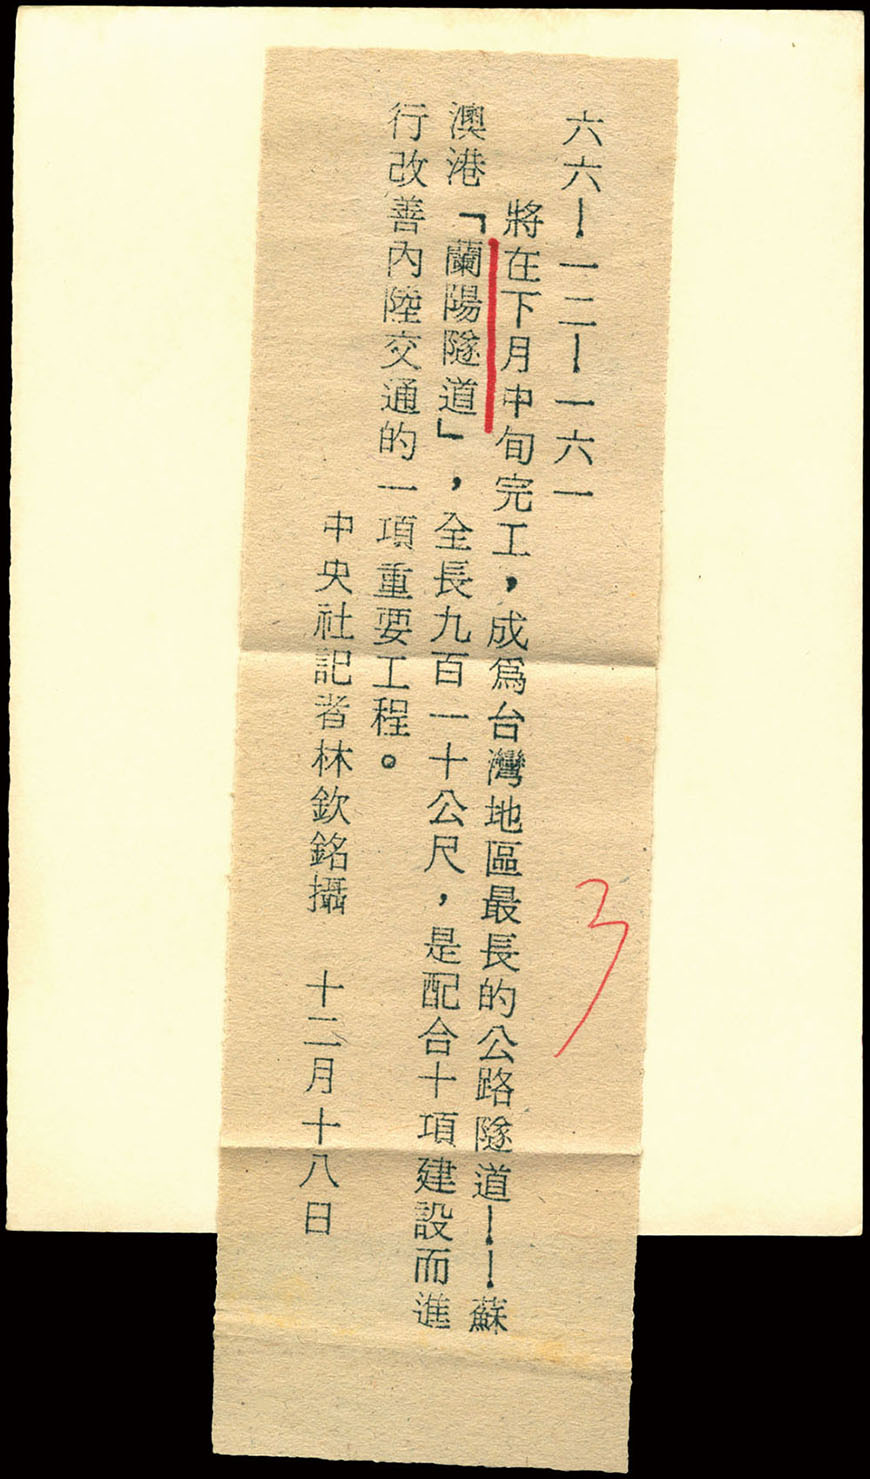 六六－一二－一六一
將在下月中旬完工，成爲台灣地區最長的公路隧道－－蘇
澳港「蘭陽隧道」，全長九百一十公尺，是配合十項建設而進
行改善內陸交通的一項重要工程。
中央社記者林欽銘攝　十二月十八日
3